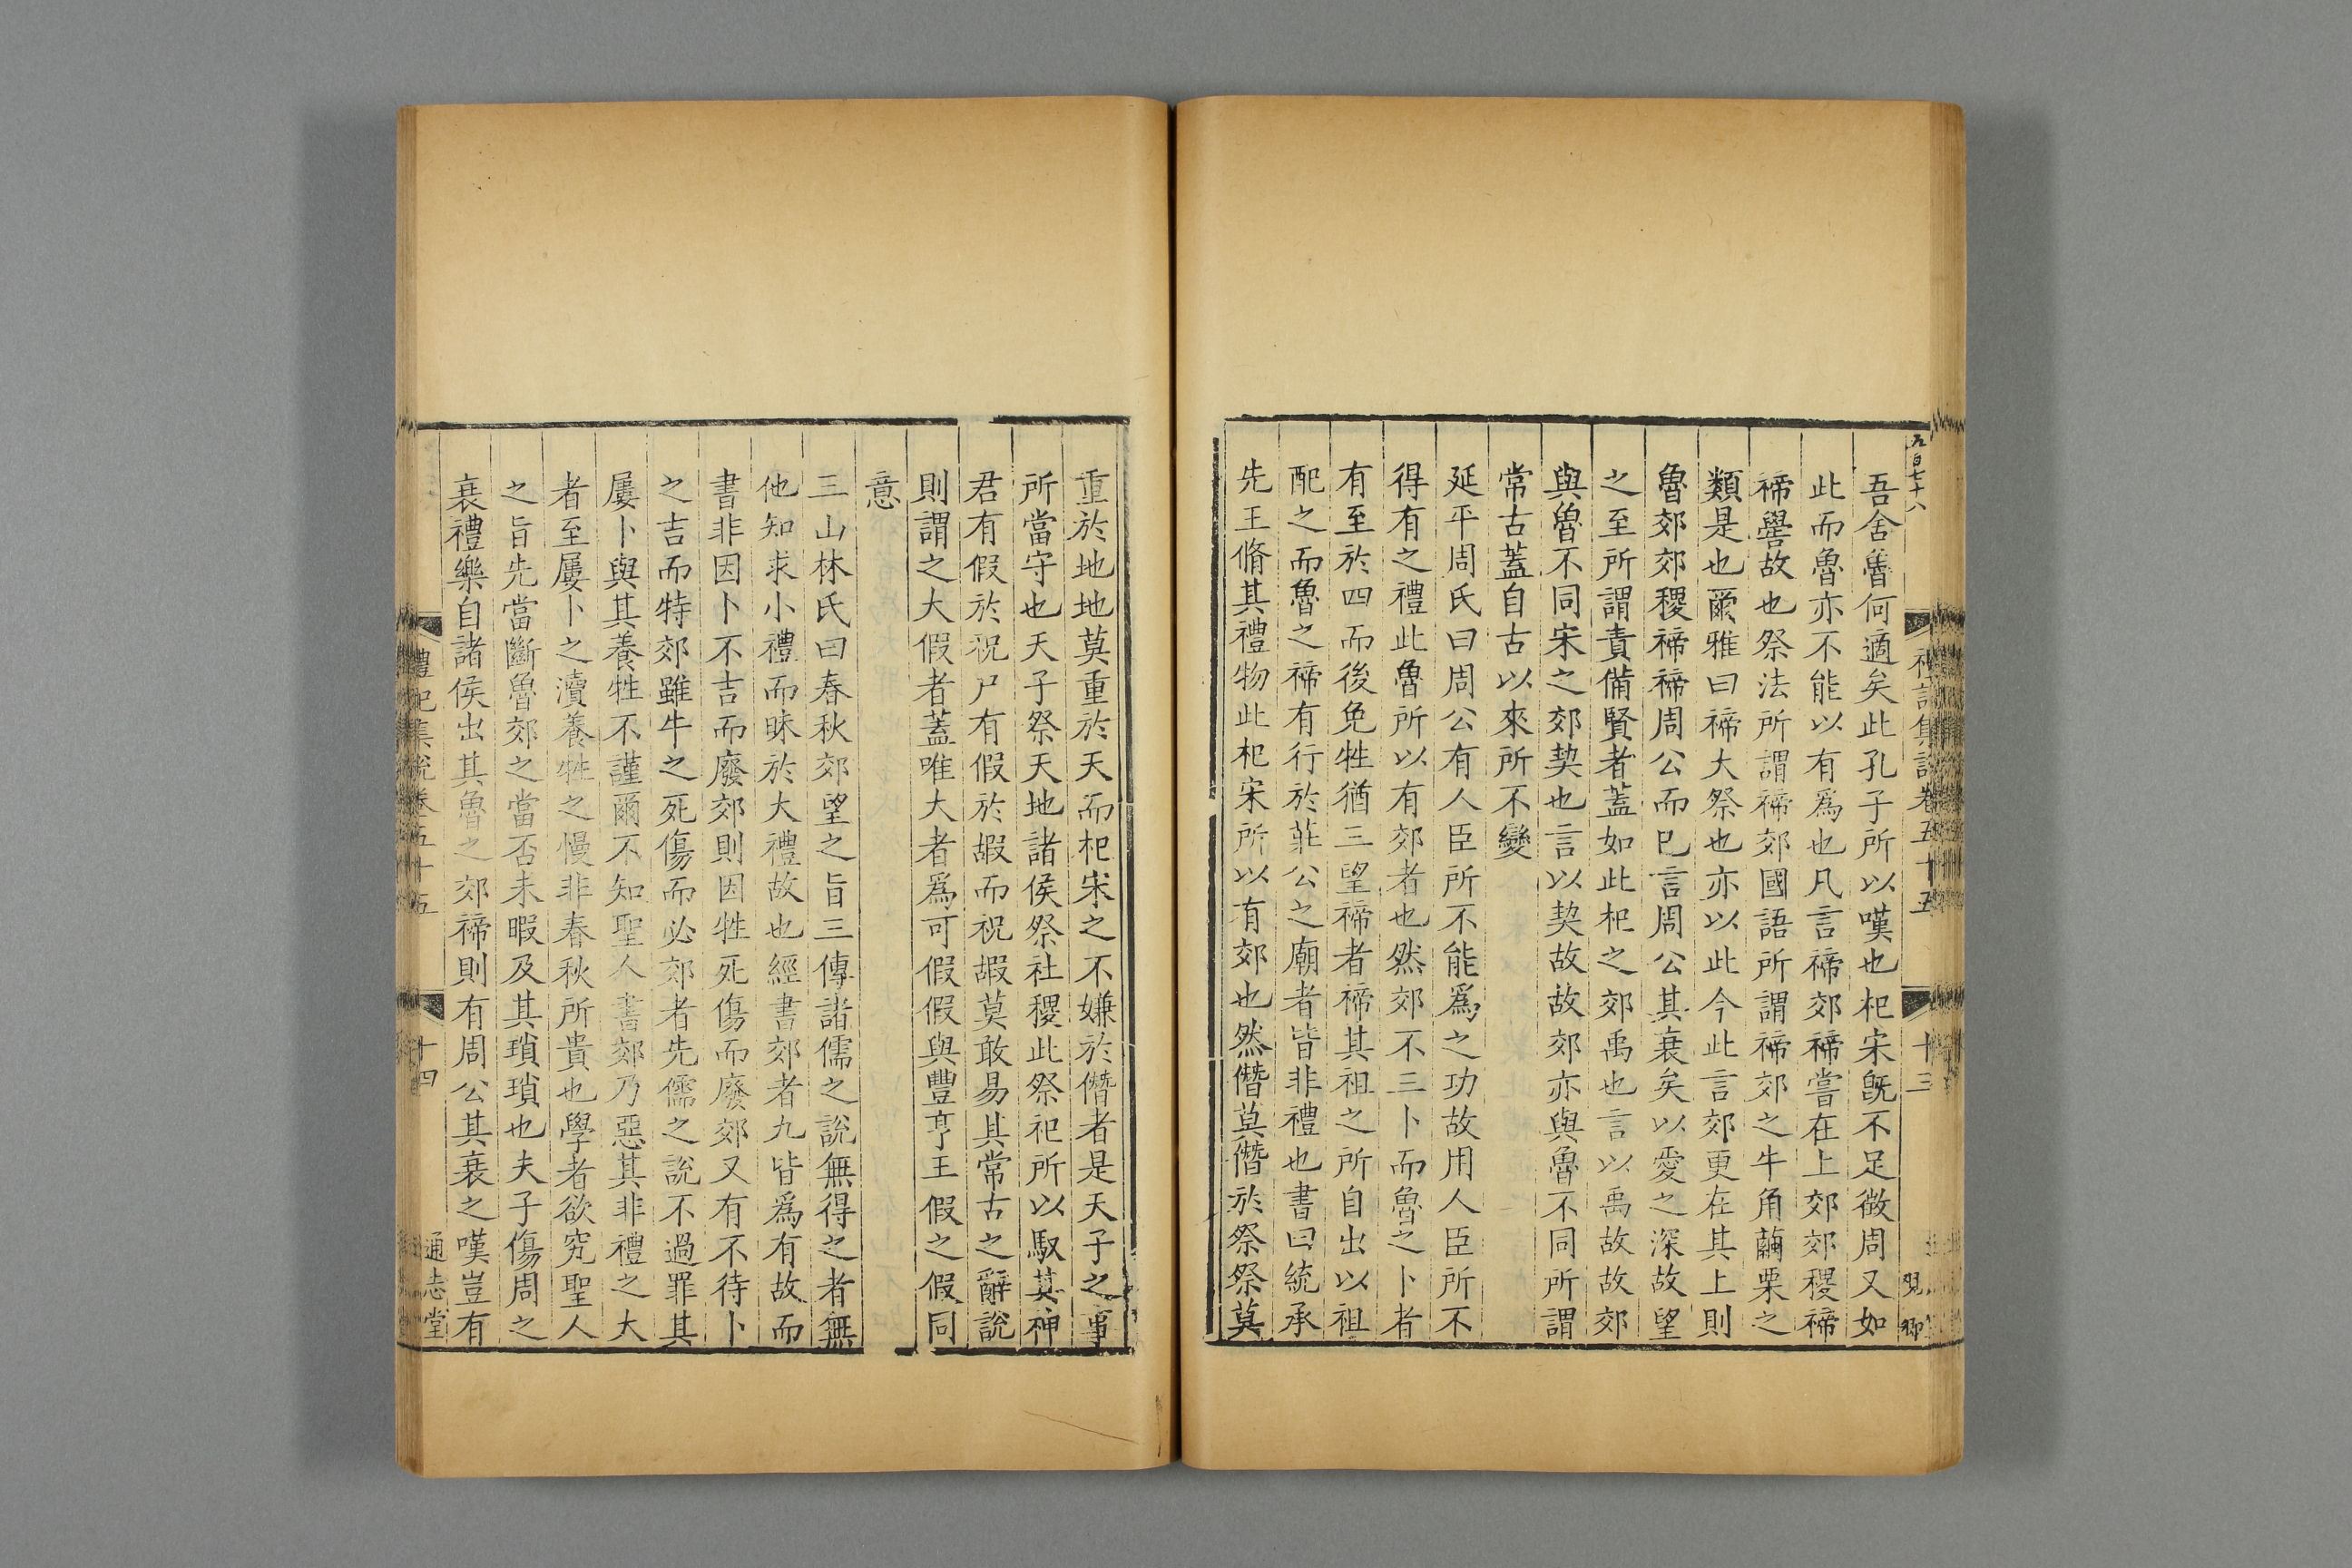 五百七十八
禮記集說卷五十五
十三
吾舍魯何適矣此孔子所以嘆也杞宋旣不足徵周又如
此而魯亦不能以有爲也凡言禘郊禘嘗在上郊郊稷禘
禘嚳故也祭法所謂禘郊國語所謂禘郊之牛角繭栗之
類是也爾雅曰禘大祭也亦以此今此言郊更在其上則
魯郊郊稷禘禘周公而巳言周公其衰矣以愛之深故望
之至所謂責備賢者蓋如此杞之郊禹也言以禹故故郊
與魯不同宋之郊契也言以契故故郊亦與魯不同所謂
常古蓋自古以來所不變
延平周氏曰周公有人臣所不能爲之功故用人臣所不
得有之禮此魯所以有郊者也然郊不三卜而魯之卜者
有至於四而後免牲猶三望禘者禘其祖之所自出以祖
配之而魯之禘有行於莊公之廟者皆非禮也書曰統承
先王脩其禮物此杞宋所以有郊也然僭莫僭於祭祭莫
重於地地莫重於天而杞宋之不嫌於僭者是天子之事
所當守也天子祭天地諸侯祭社稷此祭祀所以馭其神
君有假於祝尸有假於嘏而祝嘏莫敢易其常古之辭說
則謂之大假者蓋唯大者爲可假假與豐亨王假之假同
意
三山林氏曰春秋郊望之旨三傳諸儒之說無得之者無
他知求小禮而昧於大禮故也經書郊者九皆爲有故而
書非因卜不吉而廢郊則因牲死傷而廢郊又有不待卜
之吉而特郊雖牛之死傷而必郊者先儒之說不過罪其
屢卜與其養牲不謹爾不知聖人書郊乃惡其非禮之大
者至屢卜之瀆養牲之慢非春秋所貴也學者欲究聖人
之旨先當斷魯郊之當否未暇及其瑣瑣也夫子傷周之
衰禮樂自諸侯出其魯之郊禘則有周公其衰之嘆豈有
禮記集說卷五十五
十四
通志堂